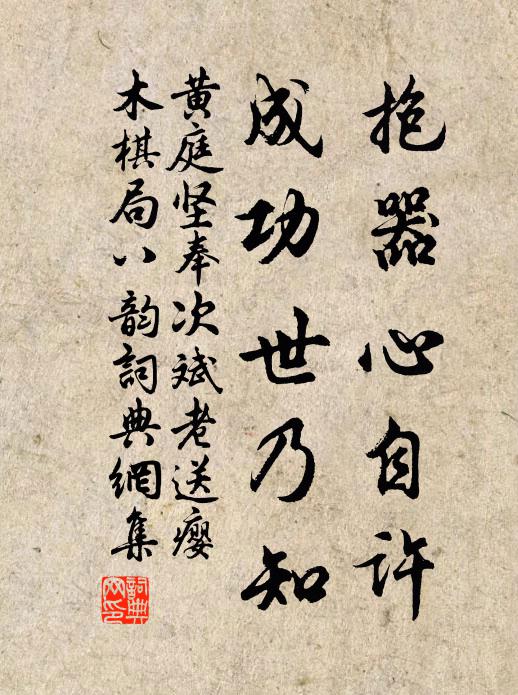 抱器心自许
成功世乃知
黄庭坚奉次斌老送瘿
木棋局八韵詞典網集
詞典网印